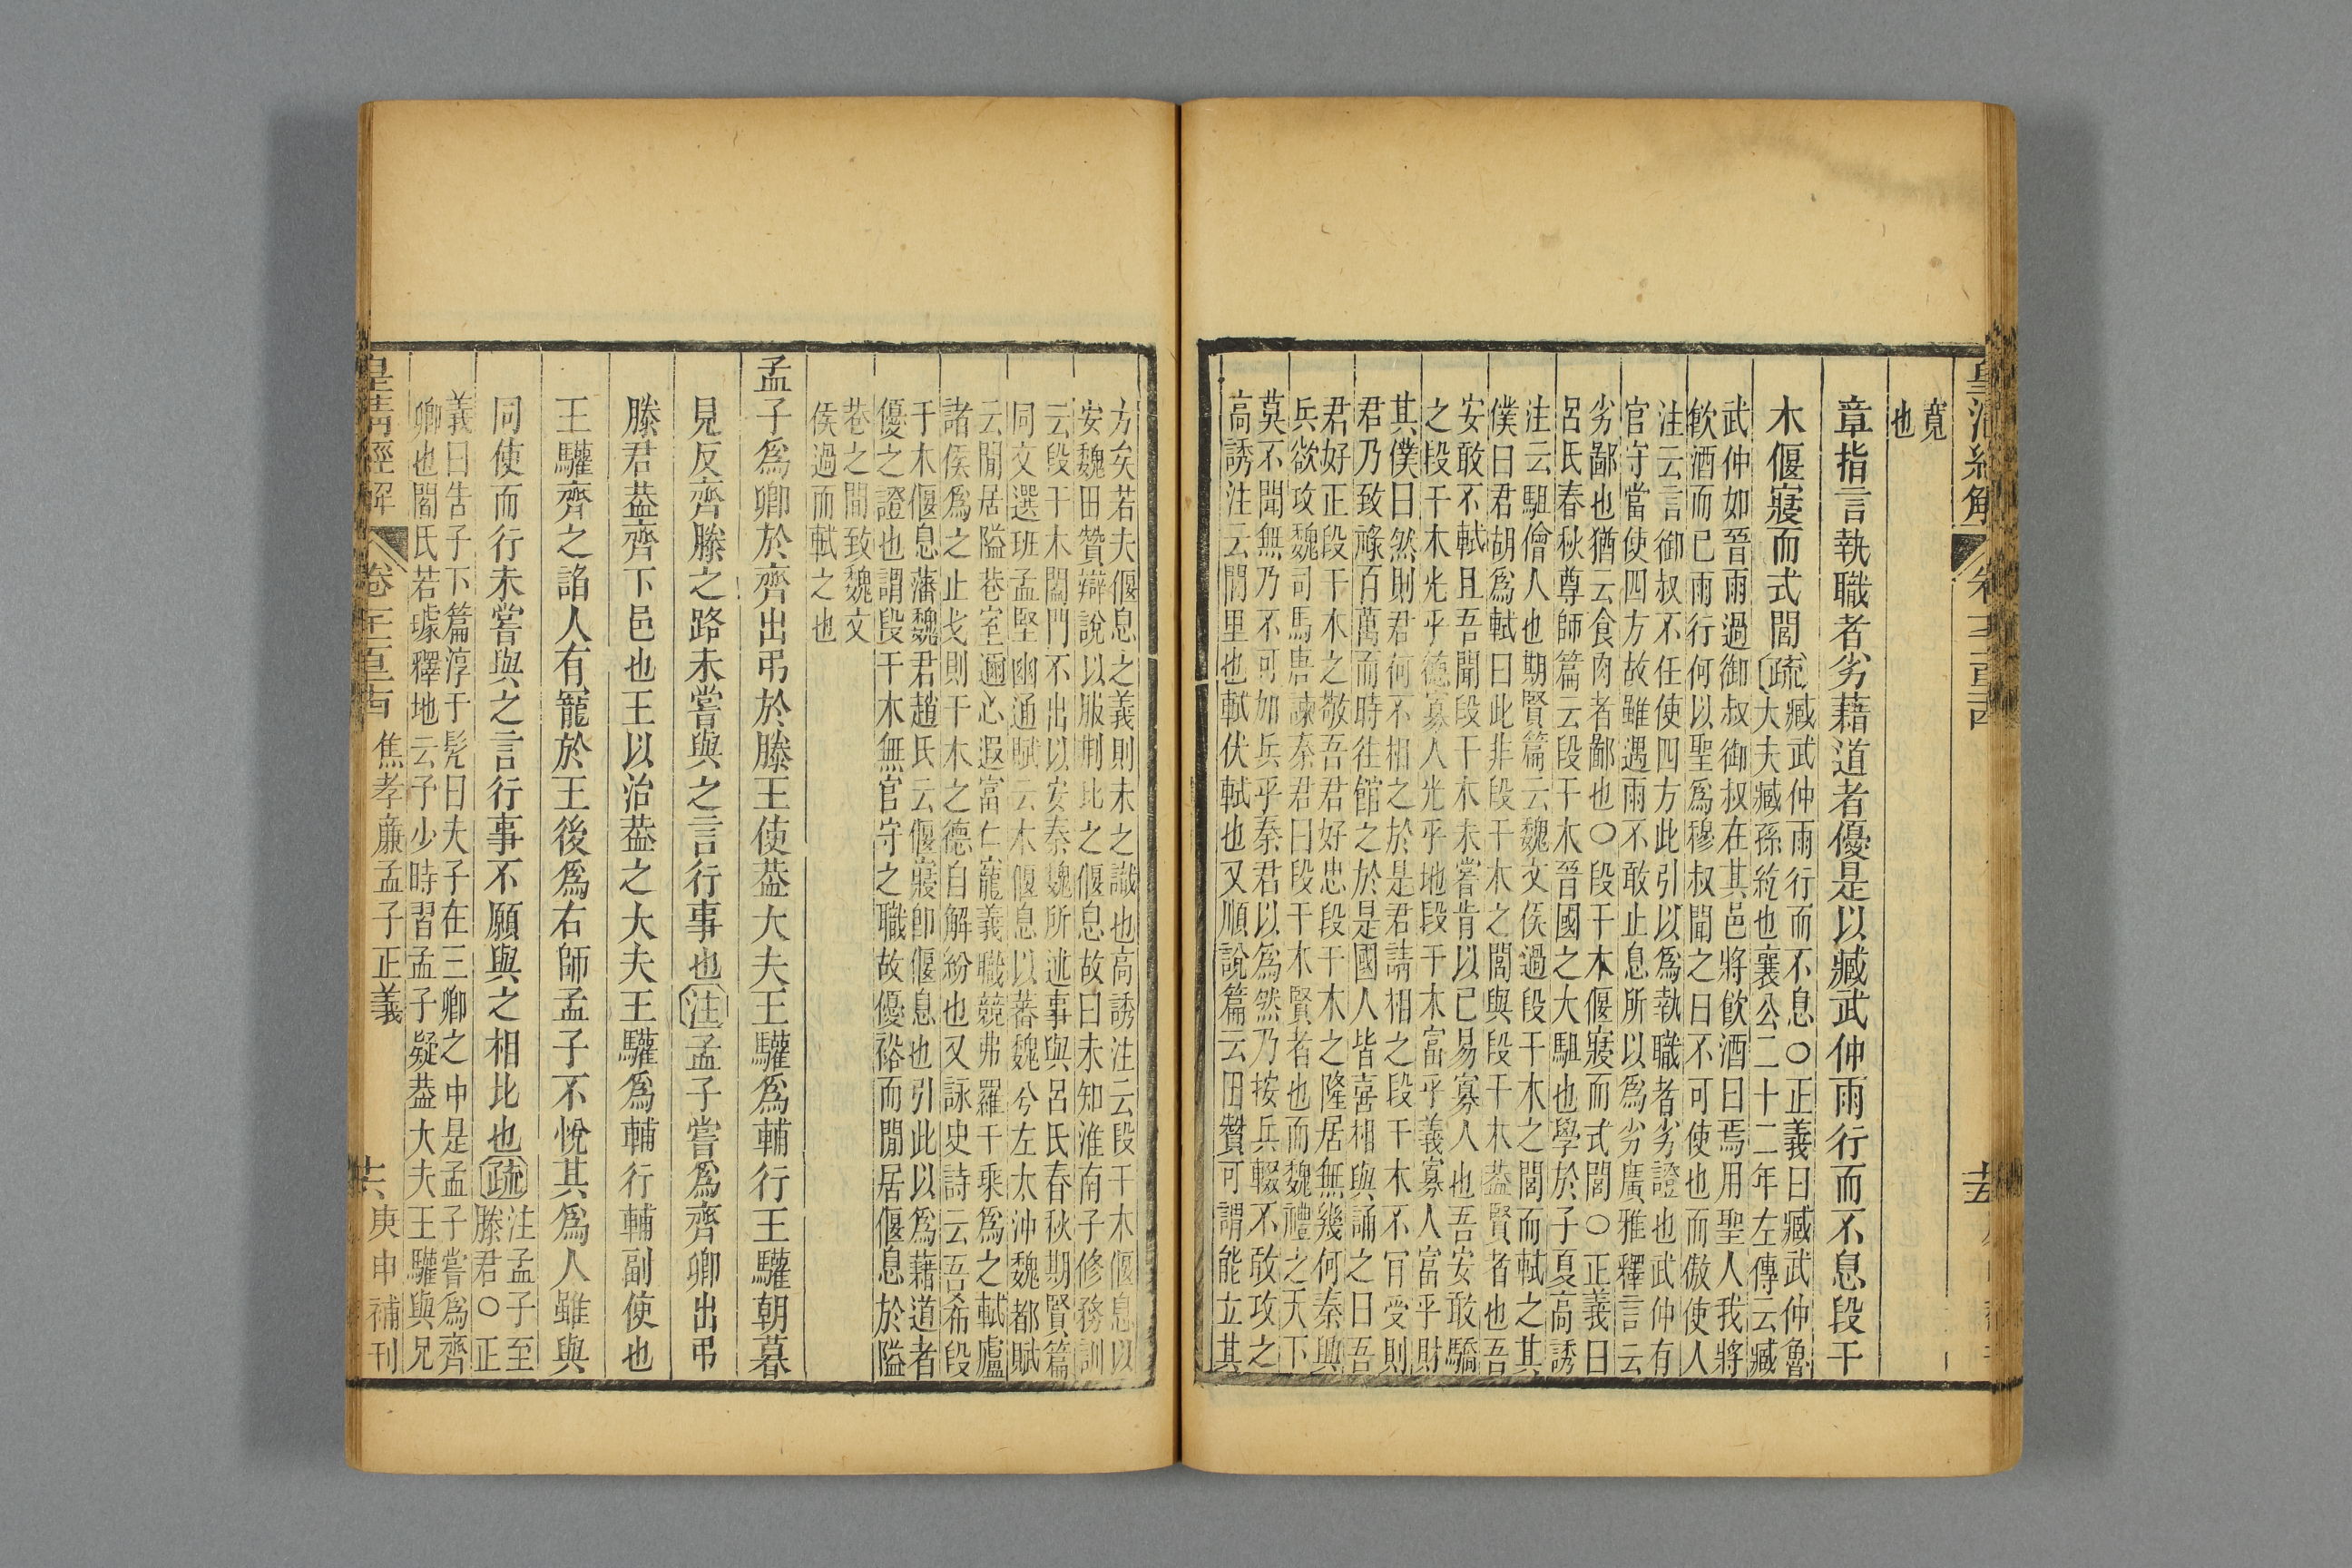 皇清經解
寬
也
章指言執職者劣藉道者優是以臧武仲雨行而不息段干
木偃寢而式閭疏臧武仲雨行而不息○正義曰臧武仲魯
大夫臧孫紇也襄公二十二年左傳云臧
武仲如晉雨過御叔御叔在其邑將飲酒曰焉用聖人我將
飲酒而已雨行何以聖爲穆叔聞之曰不可使也而傲使人
注云言御叔不任使四方此引以爲執職者劣證也武仲有
官守當使四方故雖遇雨不敢止息所以爲劣廣雅釋言云
劣鄙也猶云食肉者鄙也○段干木偃寢而式閭○正義曰
呂氏春秋尊師篇云段干木晉國之大駔也學於子夏高誘
注云駔儈人也期賢篇云魏文侯過段干木之閭而軾之其
僕曰君胡爲軾曰此非段干木之閭與段干木葢賢者也吾
安敢不軾且吾聞段干木未嘗肯以已易寡人也吾安敢驕
之段干木光乎德寡人光乎地段干木富乎義寡人富乎財
其僕曰然則君何不相之於是君請相之段干木不肎受則
君乃致祿百萬而時往館之於是國人皆喜相與誦之曰吾
君好正段干木之敬吾君好忠段干木之隆居無幾何秦興
兵欲攻魏司馬唐諫秦君曰段干木賢者也而魏禮之天下
莫不聞無乃不可加兵乎秦君以爲然乃按兵輟不敢攻之
高誘注云閭里也軾伏軾也又順說篇云田贊可謂能立其
方矣若夫偃息之義則未之識也高誘注云段干木偃息以
安魏田贊辯說以服荆比之偃息故曰未知淮南子修務訓
云段干木闔門不出以安秦魏所述事與呂氏春秋期賢篇
同文選班孟堅幽通賦云木偃息以蕃魏兮左太沖魏都賦
云閒居隘巷室邇心遐富仁寵義職競弗羅千乘爲之軾廬
諸侯爲之止戈則干木之德自解紛也又詠史詩云吾希段
干木偃息藩魏君趙氏云偃寢卽偃息也引此以爲藉道者
優之證也謂段干木無官守之職故優裕而閒居偃息於隘
巷之間致魏文
侯過而軾之也
孟子爲卿於齊出弔於滕王使葢大夫王驩爲輔行王驩朝暮
見反齊滕之路未嘗與之言行事也注孟子嘗爲齊卿出弔
滕君葢齊下邑也王以治葢之大夫王驩爲輔行輔副使也
王驩齊之諂人有寵於王後爲右師孟子不悅其爲人雖與
同使而行未嘗與之言行事不願與之相比也疏注孟子至
滕君○正
義曰吿子下篇淳于髡曰夫子在三卿之中是孟子嘗爲齊
卿也閻氏若璩釋地云予少時習孟子疑葢大夫王驩與兄
皇淸經解 卷 焦孝廉孟子正義 庚申補刊